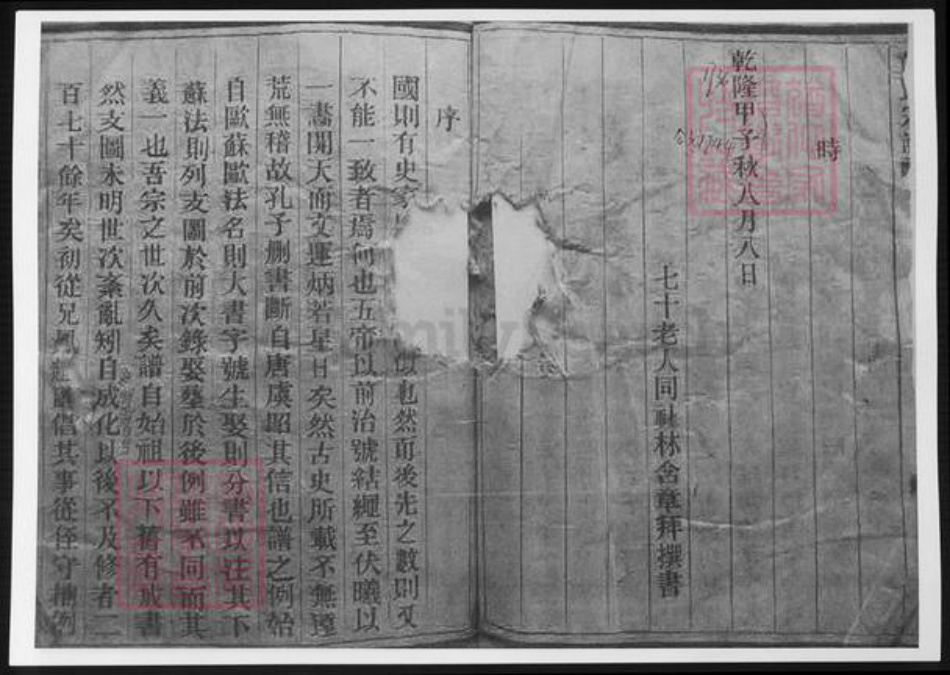 時
乾隆甲子秋八月八日
七十老人同社林含章拜撰書
序
國則有史家
似也然而後先之數則又
不能一致者焉何也五帝以前治號結繩至伏曦以
一畫開天而文運炳若星日矣然古史所載不無
荒無稽故孔子刪書斷自唐虞昭其信也譜之例始
自歐蘇歐法名則大書字號生娶則分書以註其下
蘇法則列支圖於前次錄娶塟於後例雖不同而其
義一也吾宗之世次久矣譜自始祖以下舊有成書
然支圖未明世次紊亂矧自成化以後不及修者二
百七十餘年矣初從兄鳳 倡其事從侄守 例